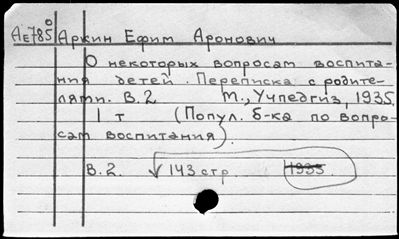 АЕ785⁰ Аркин Ефим Аронович
О некоторых вопросам воспита-
ния детей. Переписка с родите-
лями. В.2 М., Учпедгиз, 1935.
1 т (Попул. б-ка по вопро-
сам воспитания).
В.2. √ 143 стр. 1935.